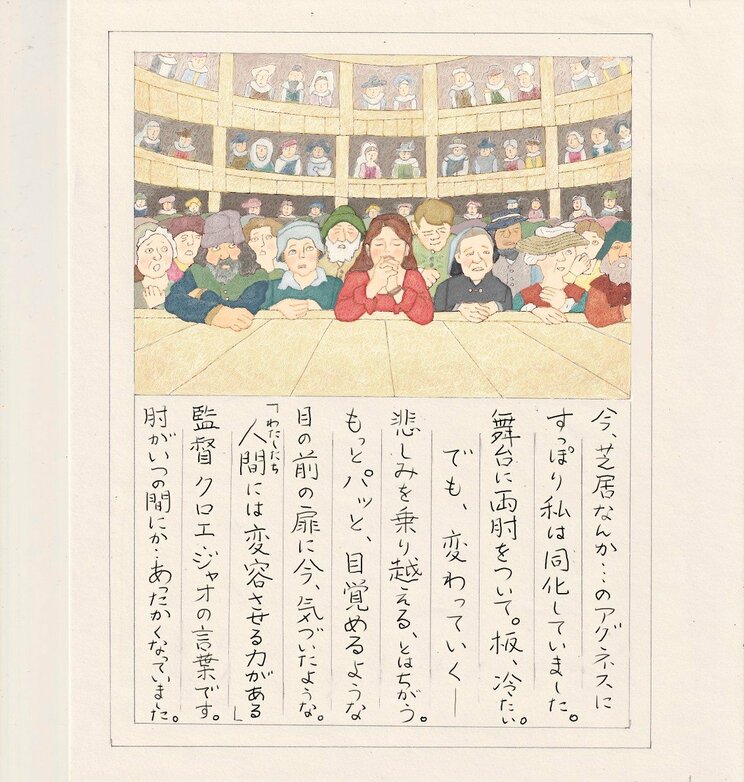 今、芝居なんか…のアグネスに
すっぽり私は同化していました。
舞台に両肘をついて。板、冷たい。
でも、変わっていく―
悲しみを乗り越える、とはちがう。
もっとパッと、目覚めるような
目の前の扉に今、気づいたような。
「人間には変容させる力がある」
わたしたち
監督 クロエ・ジャオの言葉です。
肘がいつの間にか…あったかくなっていました。